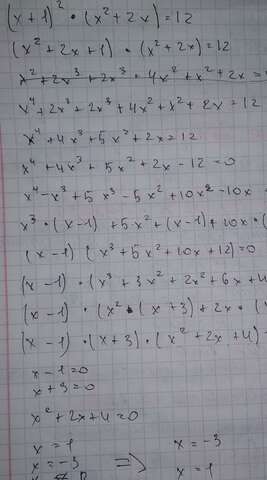 (x+1)² • (x²+2x)=12
(x²+2x+1) • (x²+2x)=12
x²+2x³+2x³ • 4x²+x²+2x =
x⁴+2x³+2x³+4x²+x²+2x=12
x⁴+4x³+5x²+2x=12
x⁴+4x³+5x²+2x-12=0
x⁴-x³+5x³-5x²+10x²-10x
x³•(x-1)+5x²+(x-1)+10x•(
(x-1) (x³+5x²+10x+12)=0
(x-1)•(x³+3x²+2x²+6x+4
(x-1)•(x²•(x+3)+2x•(
(x-1)•(x+3)•(x²+2x+4)=
x-1=0
x+3=0
x²+2x+4=0
x=1
x=-3
=> x=-3
x=1